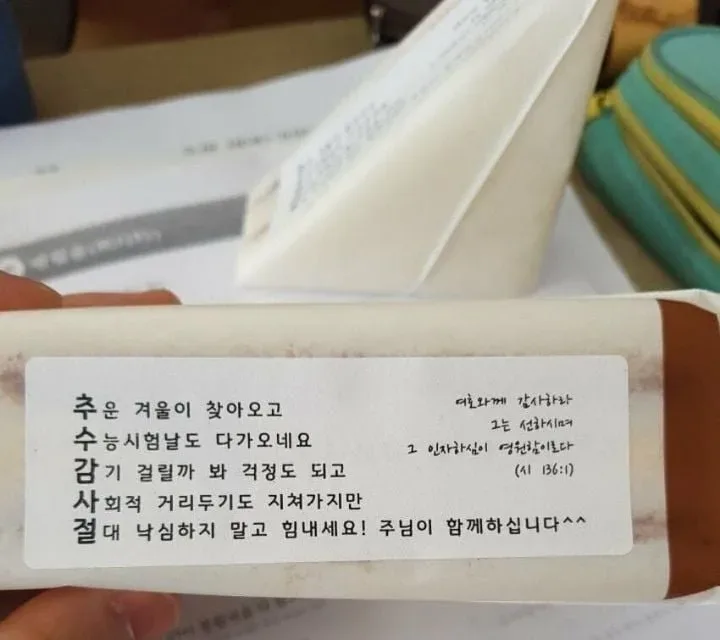 추운 겨울이 찾아오고
수능시험날도 다가오네요
감기 걸릴까 봐 걱정도 되고
사회적 거리두기도 지쳐가지만
절대 낙심하지 말고 힘내세요! 주님이 함께하십니다^^
여호와께 감사하라
그는 선하시며
그 인자하심이 영원함이로다
(시 136:1)